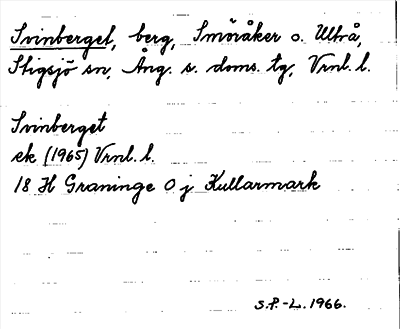 Svinberget, berg, Smöråker o. Ultrå,
Stigsjö sn, Ång. s. doms. tg, Vrnl. l.
Svinberget
ek (1965) Vrnl. l.
18 H Graninge O j Kullarmark
S.P.-L. 1966.